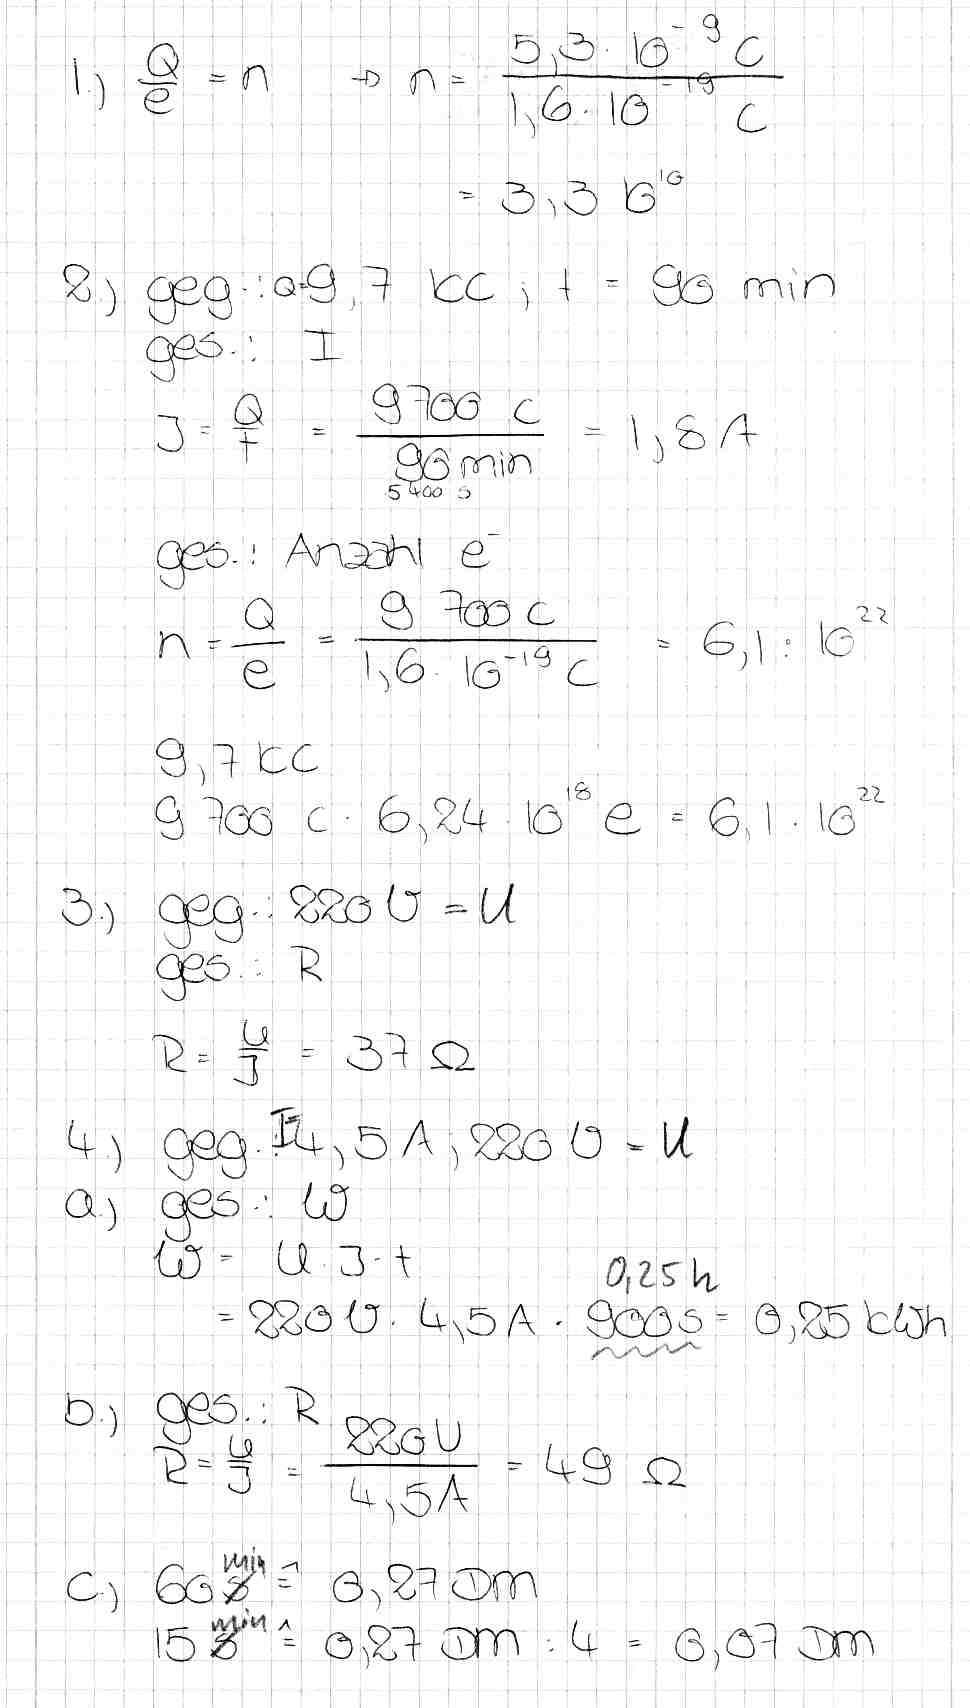 1.) Q/e = n → n = 5,3 · 10⁻⁹ C / 1,6 · 10⁻¹⁹ C
= 3,3 10¹⁰
2.) geg.: Q=9,7 kC ; t = 90 min
ges.: I
J = Q/t = 9700 C / 90 min = 1,8 A
5400 s
ges.: Anzahl e⁻
n = Q/e = 9 700 C / 1,6 · 10⁻¹⁹ C = 6,1 · 10²²
9,7 kC
9 700 C · 6,24 · 10¹⁸ e = 6,1 · 10²²
3.) geg.: 220 V = U
ges.: R
R = U/J = 37 Ω
4.) geg.: I=4,5 A ; 220 V = U
a.) ges.: W
W = U · J · t
0,25 h
= 220 V · 4,5 A · 900 s = 0,25 kWh
b.) ges.: R
R = U/J = 220 V / 4,5 A = 49 Ω
c.) 60 min ≙ 0,27 DM
15 min ≙ 0,27 DM : 4 = 0,07 DM